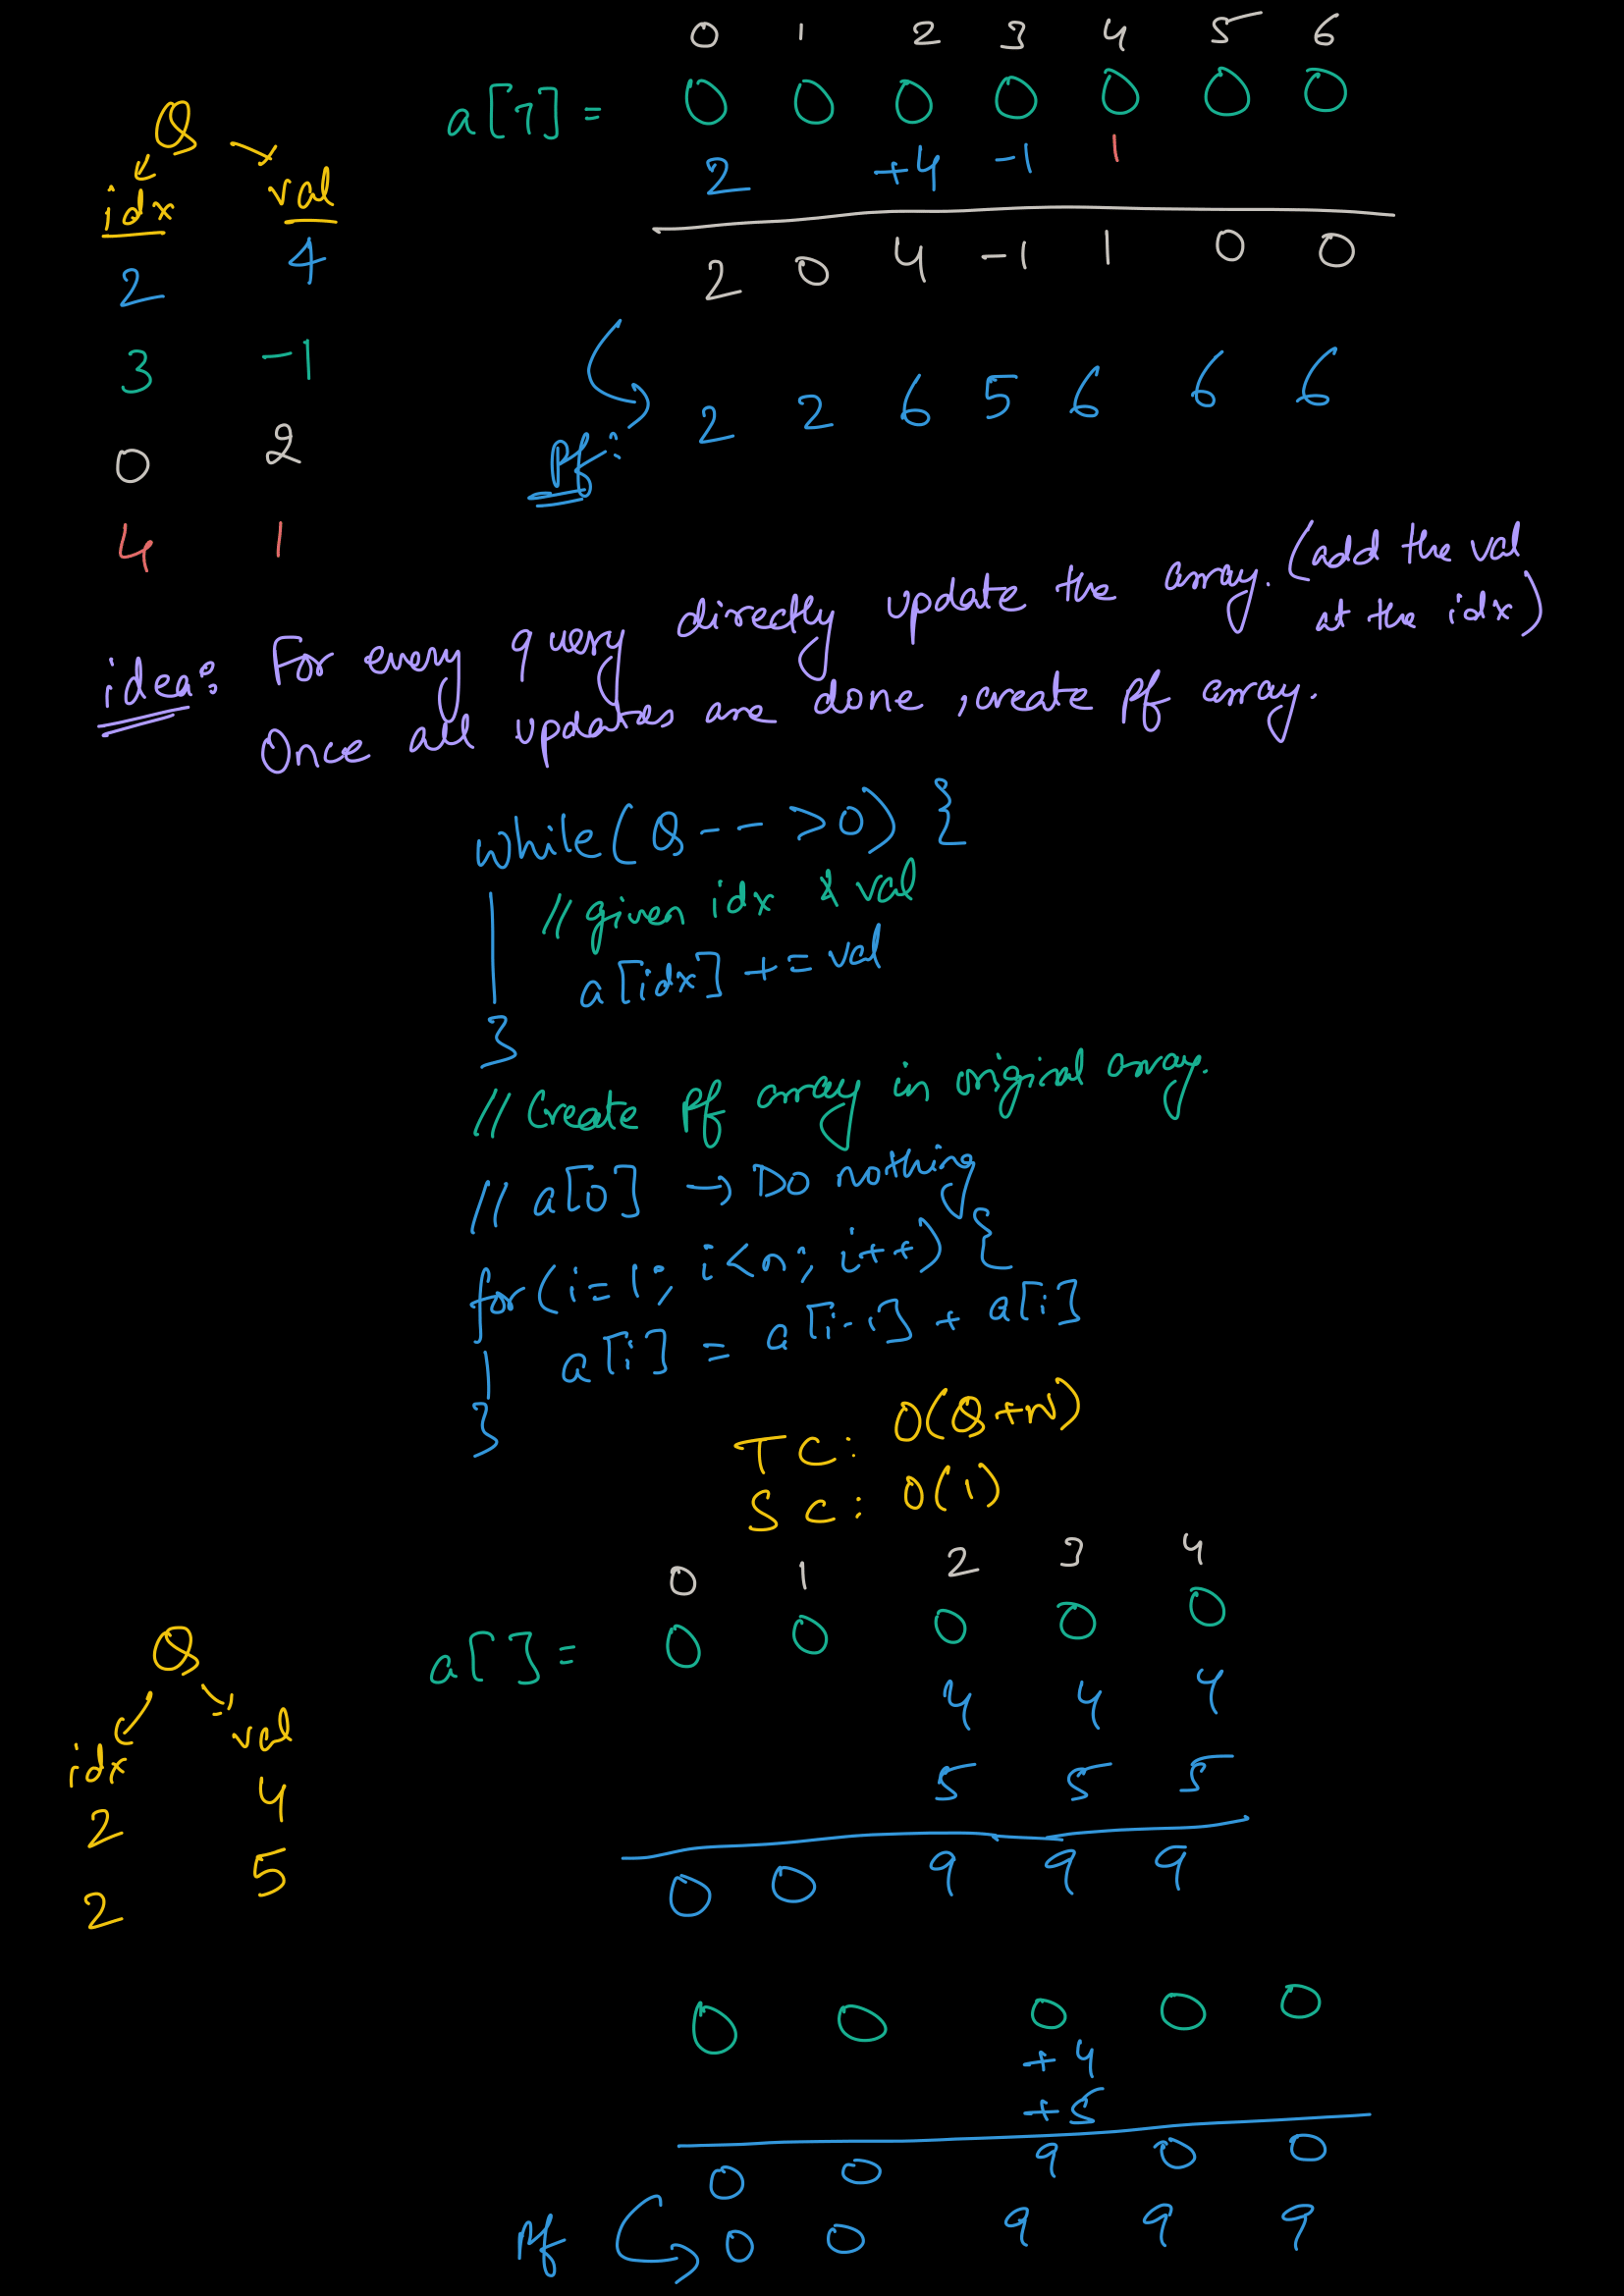 0 1 2 3 4 5 6
a[7] = 0 0 0 0 0 0 0
Q
2 +4 -1 1
idx val
2 0 4 -1 1 0 0
2 4
3 -1
pf: 2 2 6 5 6 6 6
0 2
4 1
idea: For every query directly update the array. (add the val
at the idx)
Once all updates are done, create pf array.
while(Q-- >0) {
// given idx & val
a[idx] += val
}
// Create pf array in original array.
// a[0] → Do nothing
for(i=1; i<n; i++) {
a[i] = a[i-1] + a[i]
}
TC: O(Q+N)
SC: O(1)
0 1 2 3 4
a[ ] = 0 0 0 0 0
Q
4 4 4
idx val
5 5 5
2 4
0 0 9 9 9
2 5
0 0 0 0 0
+4
+5
0 0 9 0 0
pf 0 0 9 9 9